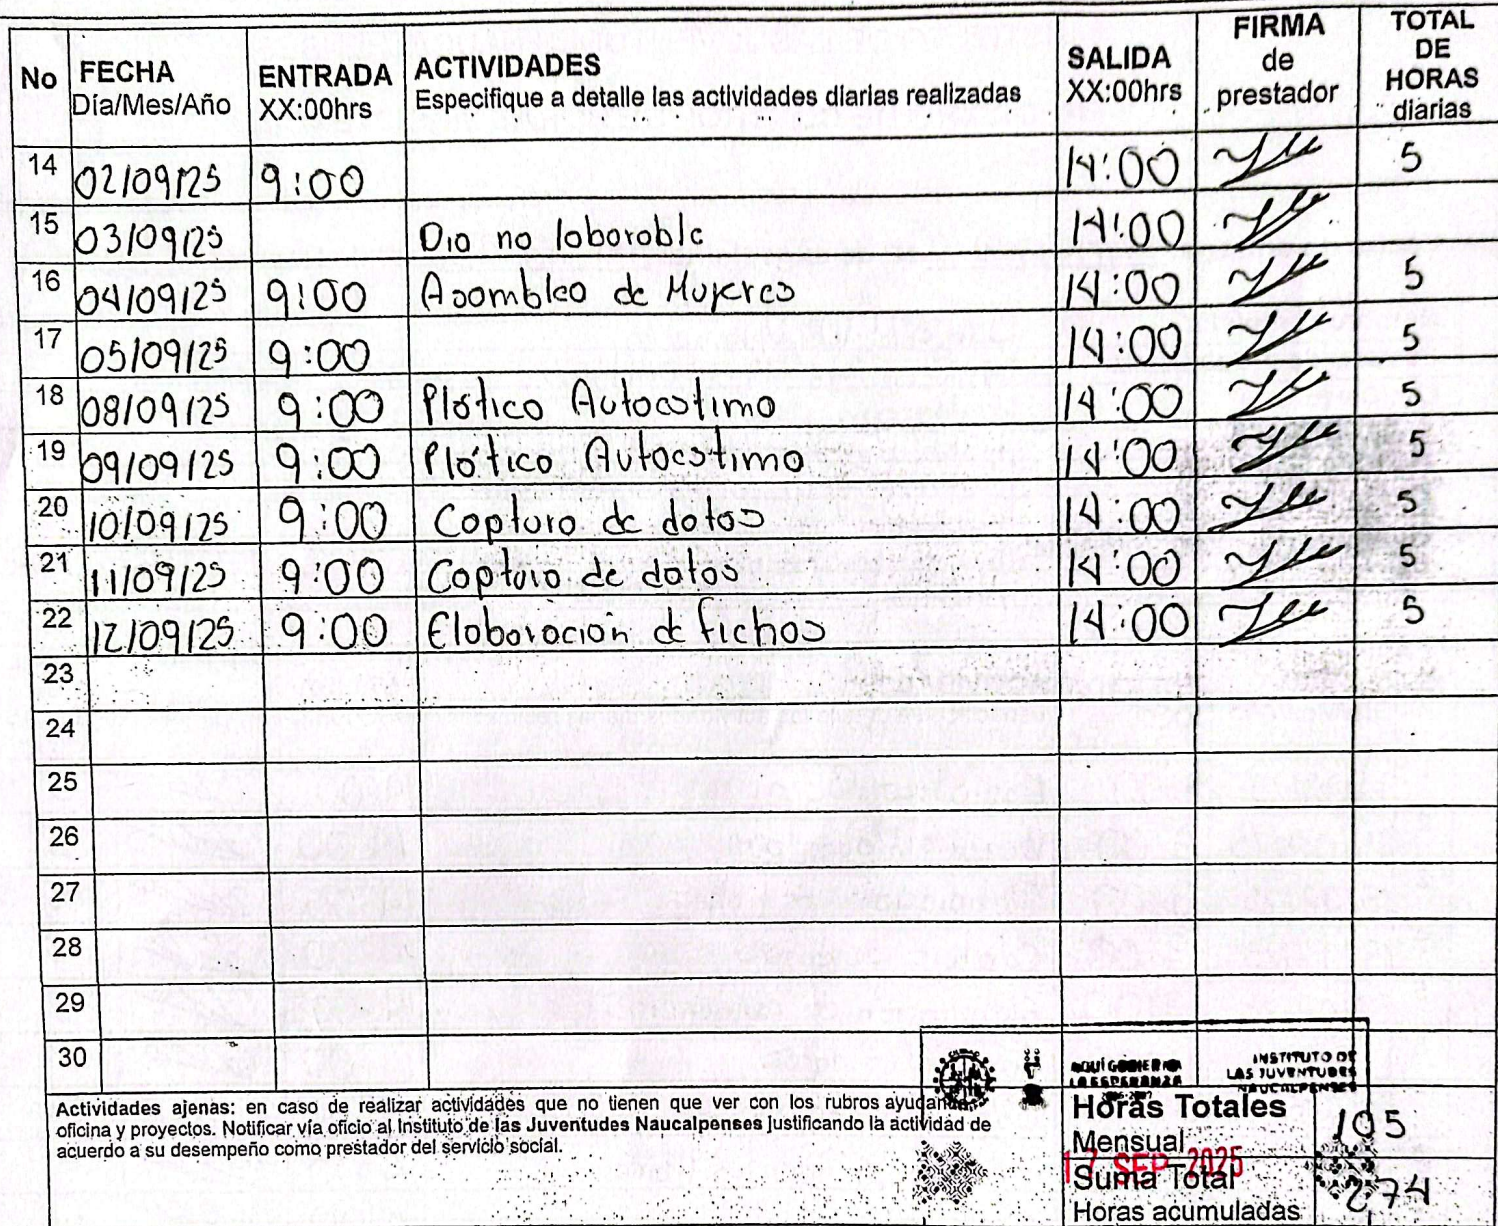 No FECHA Día/Mes/Año ENTRADA XX:00hrs ACTIVIDADES Especifique a detalle las actividades diarias realizadas SALIDA XX:00hrs FIRMA de prestador TOTAL DE HORAS diarias
14 02/09/25 9:00 14:00 5
15 03/09/25 Dia no laborable 14:00
16 04/09/25 9:00 Asamblea de Mujeres 14:00 5
17 05/09/25 9:00 14:00 5
18 08/09/25 9:00 Plática Autoestima 14:00 5
19 09/09/25 9:00 Plática Autoestima 14:00 5
20 10/09/25 9:00 Captura de datos 14:00 5
21 11/09/25 9:00 Captura de datos 14:00 5
22 12/09/25 9:00 Elaboración de fichas 14:00 5
23
24
25
26
27
28
29
30
AQUÍ GOBIERNA LA ESPERANZA
INSTITUTO DE LAS JUVENTUDES NAUCALPENSES
Actividades ajenas: en caso de realizar actividades que no tienen que ver con los rubros ayudantía,
oficina y proyectos. Notificar vía oficio al Instituto de las Juventudes Naucalpenses justificando la actividad de
acuerdo a su desempeño como prestador del servicio social.
Horas Totales
Mensual 105
17 SEP 2025
Suma Total
Horas acumuladas 274